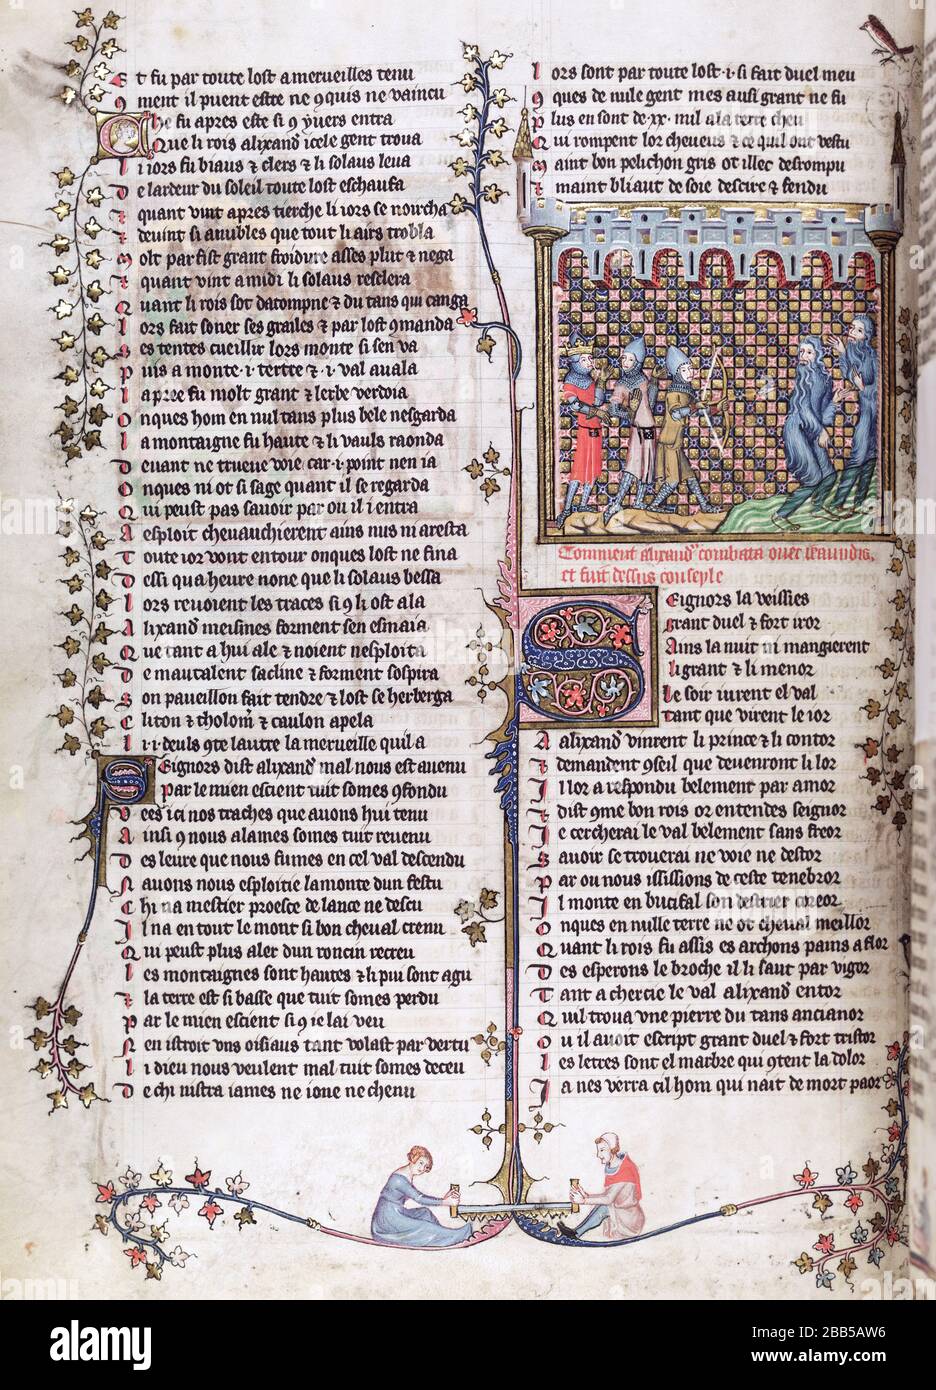 Et fu par toute lost a merueilles tenu
9ment il puent estre ne 9quis ne vaincu
Che fu apres este si 9 yuers entra
Que li rois alixand icele gent troua
Li iors fu biaus & clers & li solaus leua
De lardeur du soleil toute lost eschaufa
Et quant vint apres tierche li iors se noircha
Et deuint si anubles que tout li airs trobla
Molt par fist grant froidure asses plut & nega
Et quant vint a midi li solaus resclera
Quant li rois sot dacompne & du tans qui canga
Lors fait soner ses grailes & par lost 9manda
Ses tentes cueillir lors monte si sen va
Puis a monte .i. tertre & .i. val auala
La pree fu molt grant & lerbe verdoia
Onques hom en nul tans plus bele nesgarda
La montaigne fu haute & li vauls raonda
Deuant ne trueue voie car .i. point nen ia
Onques ni ot si sage quant il se regarda
Qui peust pas sauoir par ou il i entra
A esploit cheuauchierent ains nus ni aresta
Toute ior vont entour onques lost ne fina
Dessi qua heure none que li solaus bessa
Lors reuoient les traces si 9 li ost ala
Alixand meismes forment sen esmaia
Que tant a hui ale & noient nesploita
De mautalent sacline & forment sospira
Son paueillon fait tendre & lost se herberga
Cliton & tholom & caulon apela
Li .i. deuls 9te lautre la merueille quil a
Seignors dist alixand mal nous est auenu
Par le mien escient tuit somes 9fondu
Vees ici nos traches que auons hui tenu
Ainsi 9 nous alames somes tuit reuenu
Des leure que nous fumes en cel val descendu
Nauons nous esploitie lamonte dun festu
Chi na mestier proesce de lance ne descu
Il na en tout le mont si bon cheual crenu
Qui peust plus aler dun roncin recreu
Les montaignes sont hautes & li pui sont agu
Et la terre est si basse que tuit somes perdu
Par le mien escient si 9 ie lai veu
Nen istroit uns oisiaus tant volast par vertu
Li dieu nous veulent mal tuit somes deceu
De chi nistra iames ne ione ne chenu
Lors sont par toute lost .i. si fait duel meu
Onques de nule gent mes ausi grant ne fu
Plus en sont de .xx. mil a la terre cheu
Qui rompent lor cheueus & ce quil ont vestu
Maint bon pelichon gris ot illec desrompu
Et maint bliaut de soie descire & fendu
Comment alixand combata ouer
et fuit dessus
Seignors la veissies
Grant duel & fort iror
Ains la nuit ni mangierent
Li grant & li menor
Le soir iurent el val
Tant que virent le ior
A alixand vinrent li prince & li contor
Et demandent 9seil que deuenront li lor
Il lor a respondu belement par amor
Et dist 9me bon rois or entendes seignor
Ie cercherai le val belement sans freor
Sauoir se trouerai ne voie ne destor
Par ou nous ississions de ceste tenebror
Il monte en bucifal son destrier coreor
Onques en nulle terre ne ot cheual meillor
Quant li rois fu assis es archons pains a flor
Des esperons le broche il li saut par vigor
Tant a cherchie le val alixand entor
Quil troua vne pierre du tans ancianor
Ou il auoit escript grant duel & fort tristor
Les letres sont el marbre qui 9tent la dolor
Ia nes verra cil hom qui nait de mort paor
alamy
Image ID: 2BB5AW6
www.alamy.com